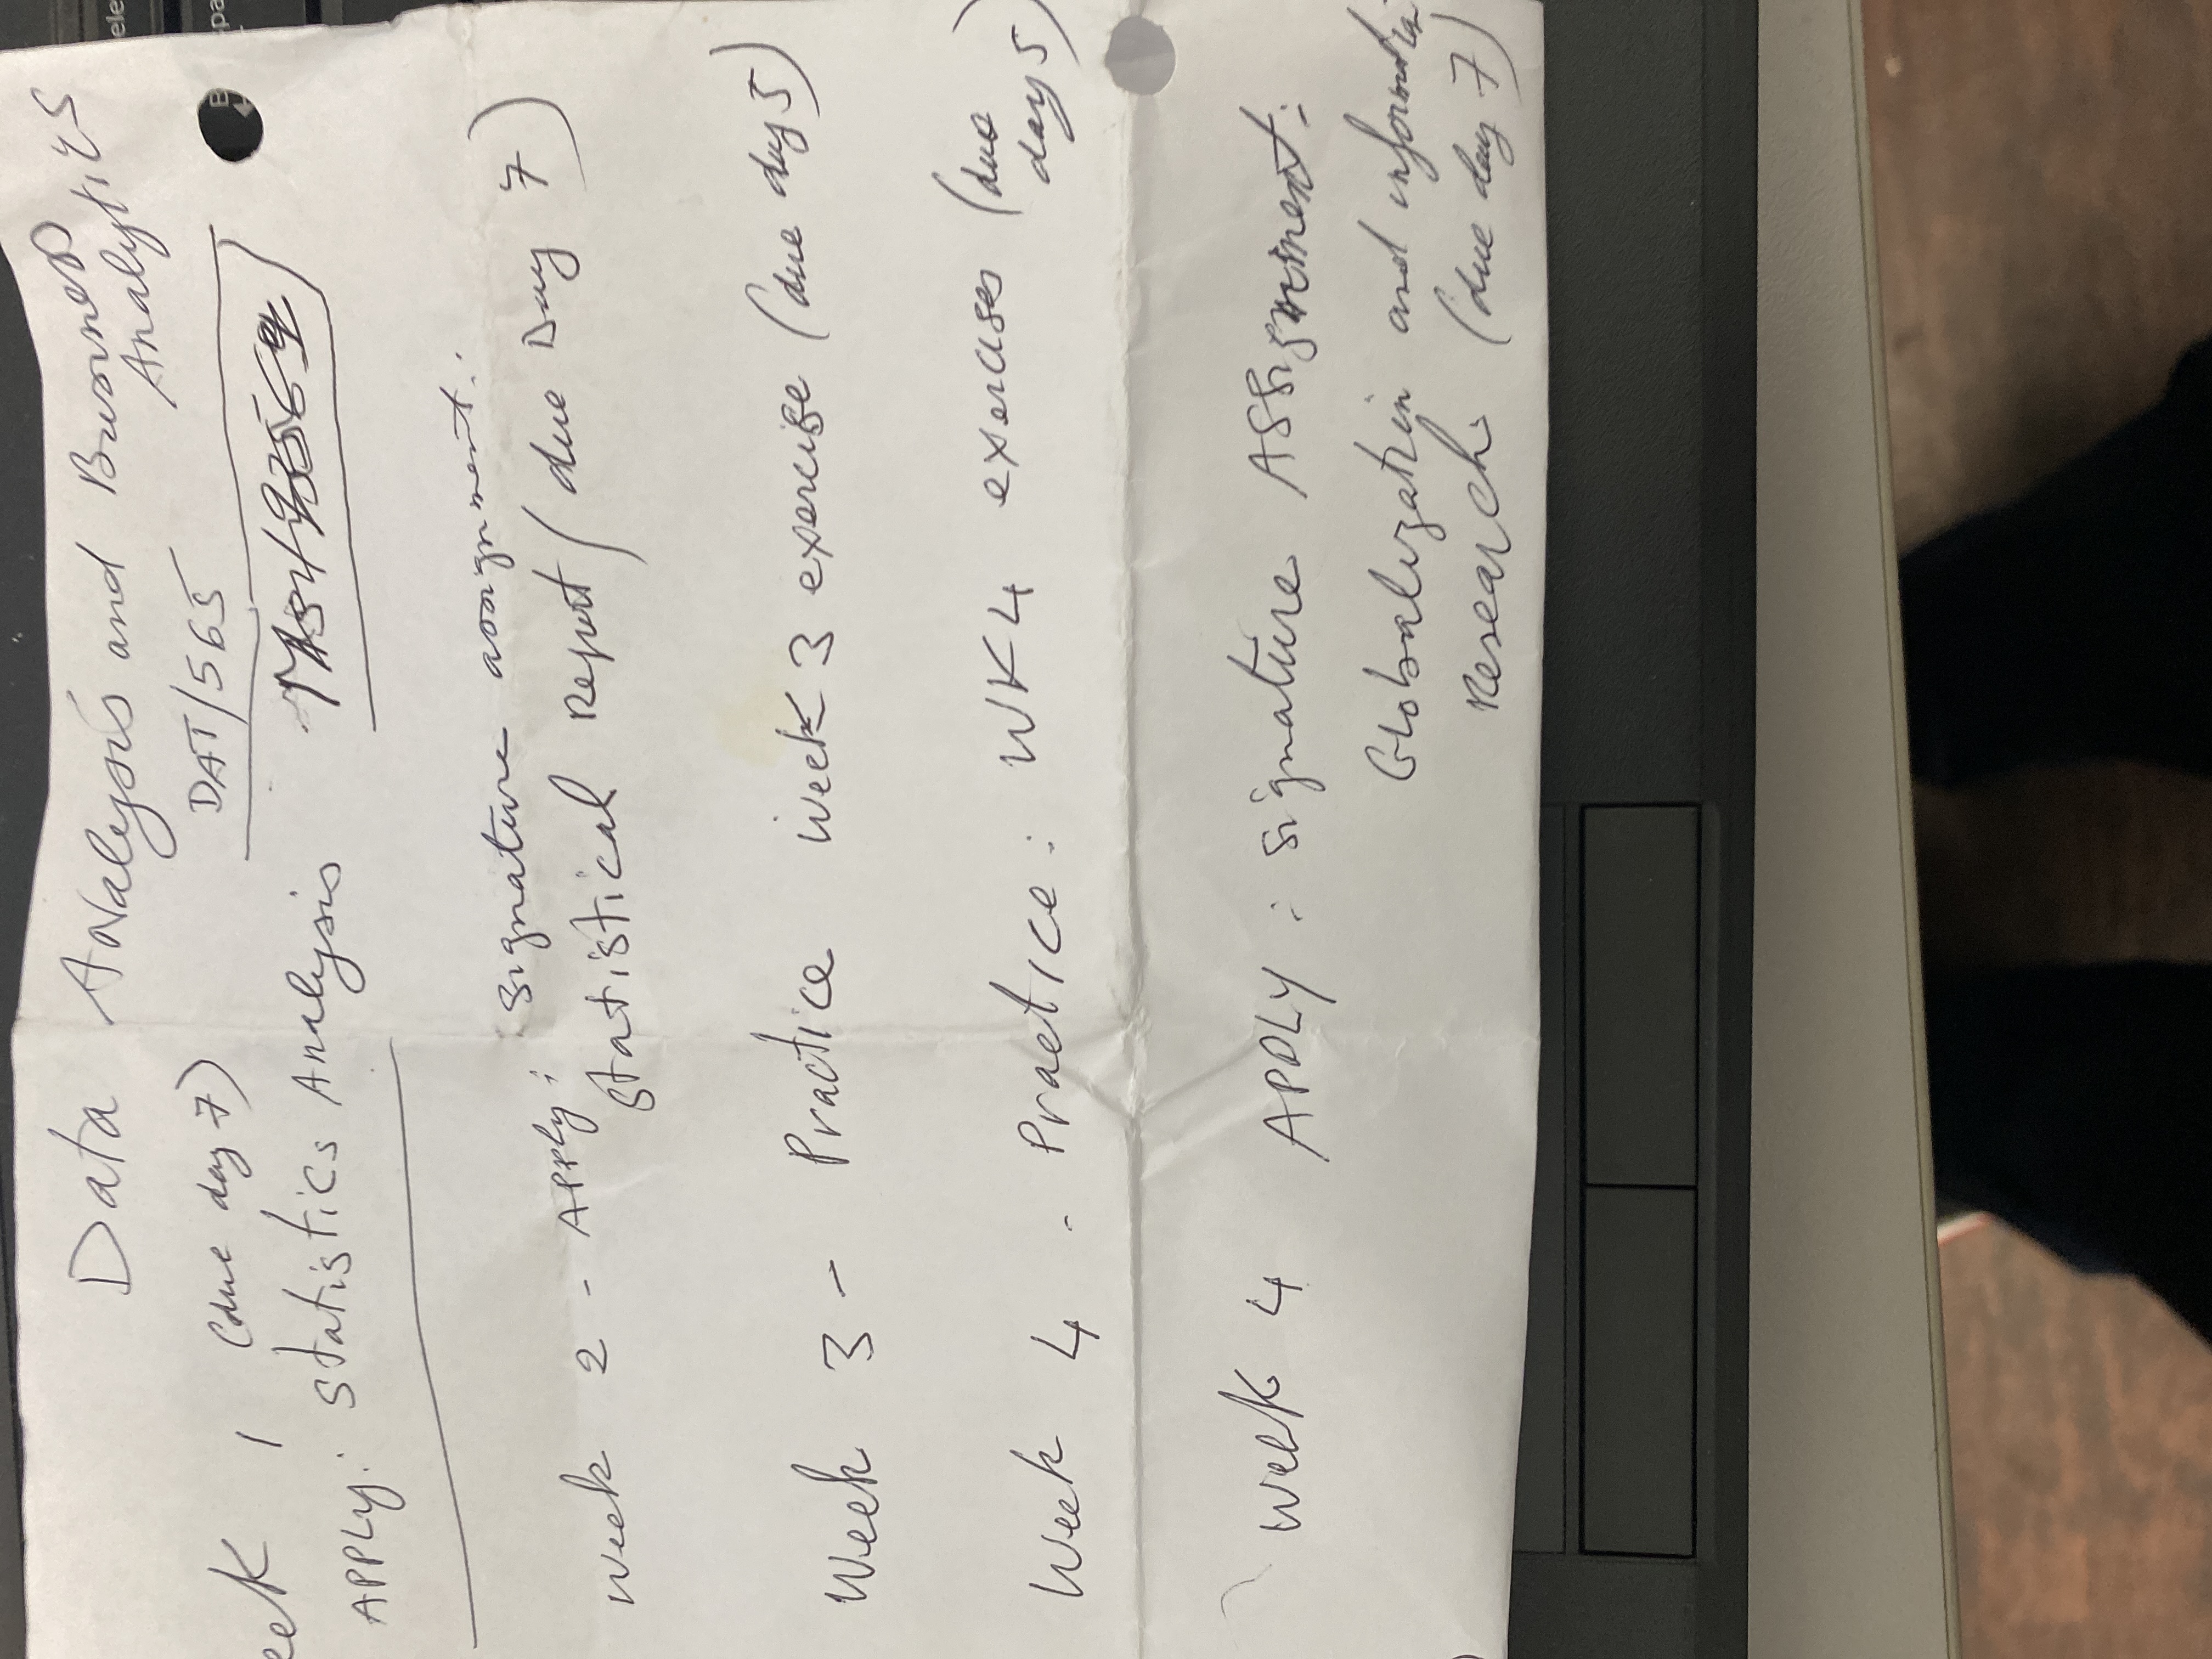 Data Analysis and Business
Analytics
DAT/565
eek 1 (due day 7)
APPLY: Statistics Analysis
Signature assignment:
Week 2 - Apply:
Statistical Report (due Day 7)
Week 3 - Practice Week 3 exercise (due day 5)
Week 4 - Practice: WK4 exercises (due
day 5)
Week 4 APPLY: Signature Assignment:
Globalization and informatin
Research (due day 7)